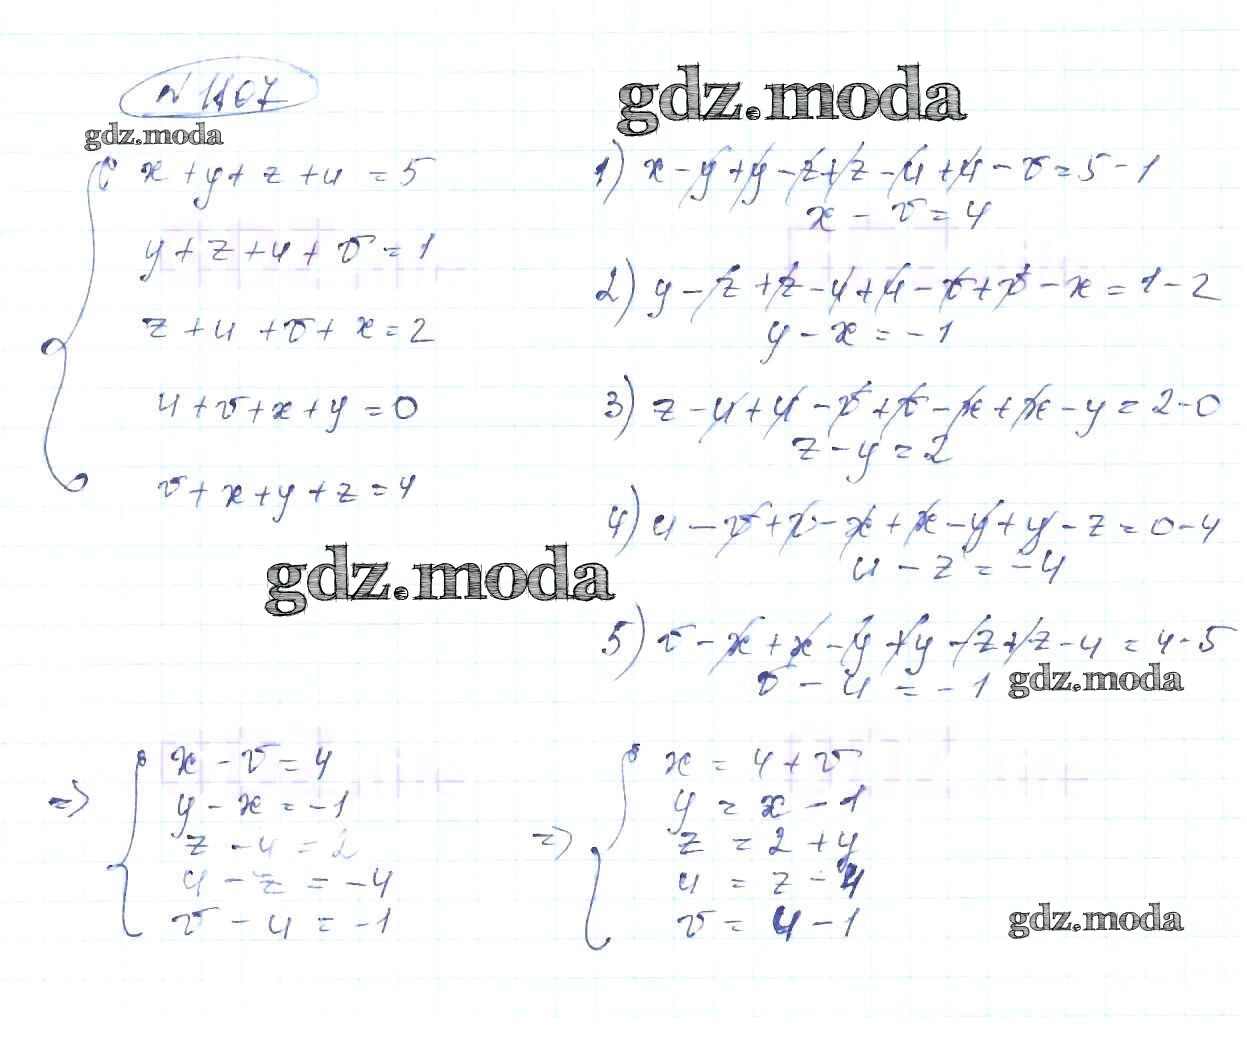 № 1107
gdz.moda
gdz.moda
x + y + z + u = 5
y + z + u + v = 1
z + u + v + x = 2
u + v + x + y = 0
v + x + y + z = 4
gdz.moda
1) x - y + y - z + z - u + u - v = 5 - 1
x - v = 4
2) y - z + z - u + u - v + v - x = 1 - 2
y - x = -1
3) z - u + u - v + v - x + x - y = 2 - 0
z - y = 2
4) u - v + v - x + x - y + y - z = 0 - 4
u - z = -4
5) v - x + x - y + y - z + z - u = 4 - 5
v - u = -1
gdz.moda
=> x - v = 4
y - x = -1
z - u = 2
u - z = -4
v - u = -1
=> x = 4 + v
y = x - 1
z = 2 + y
u = z - 4
v = u - 1
gdz.moda